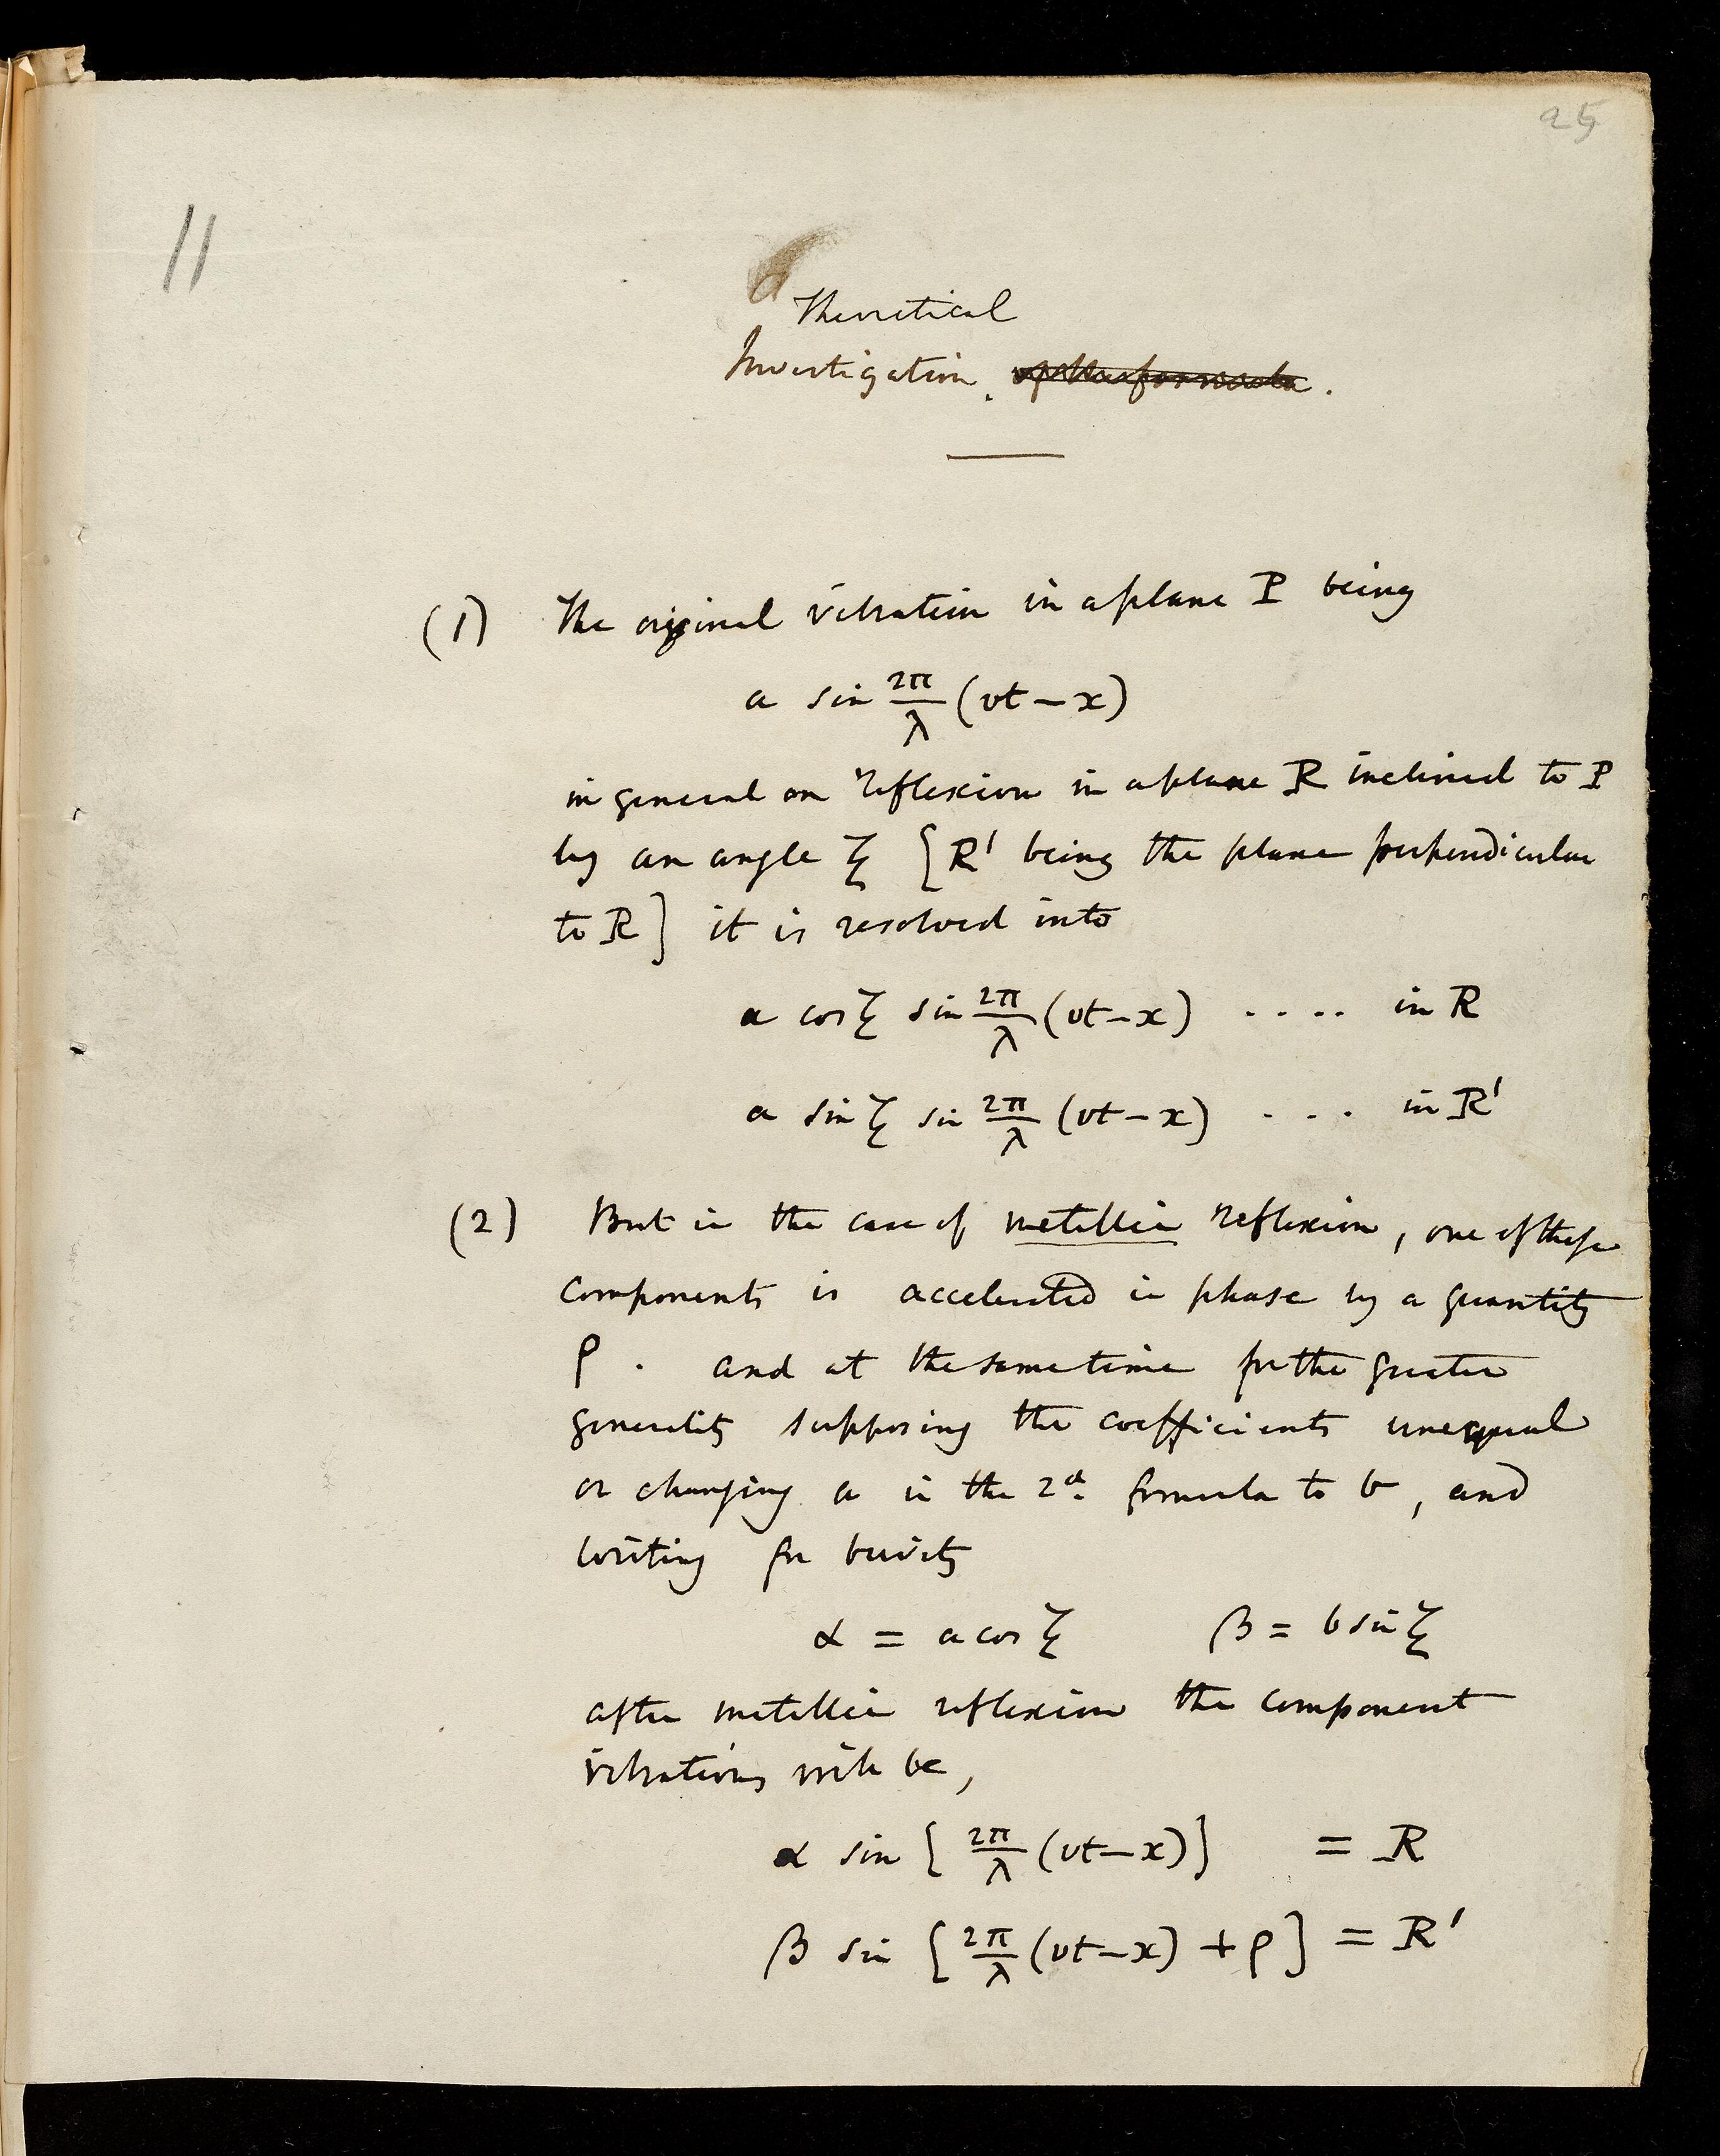 25
11
Theoretical
Investigation. of the formula.
(1) The original vibration in a plane P being
a sin 2π/λ (vt – x)
in general on reflexion in a plane R inclined to P
by an angle ξ [R' being the plane perpendicular
to R] it is resolved into
a cos ξ sin 2π/λ (vt – x) .... in R
a sin ξ sin 2π/λ (vt – x) ... in R'
(2) But in the case of metallic reflexion, one of these
components is accelerated in phase by a quantity
ρ . and at the same time for the greater
generality supposing the coefficients unequal
or changing a in the 2d. formula to b, and
writing for brevity
α = a cos ξ β = b sin ξ
after metallic reflexion the component
vibrations will be,
α sin [2π/λ (vt – x)] = R
β sin [2π/λ (vt – x) + ρ] = R'